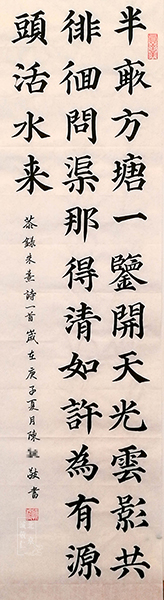 半畝方塘一鑒開天光雲影共
徘徊問渠那得清如許為有源
頭活水来
恭錄朱熹詩一首歲在庚子夏月陳敬書